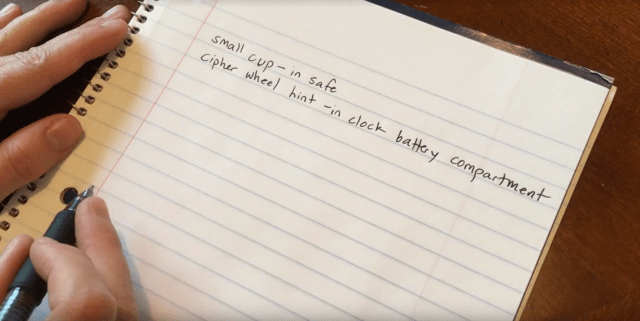 small cup – in safe
cipher wheel hint – in clock battery compartment